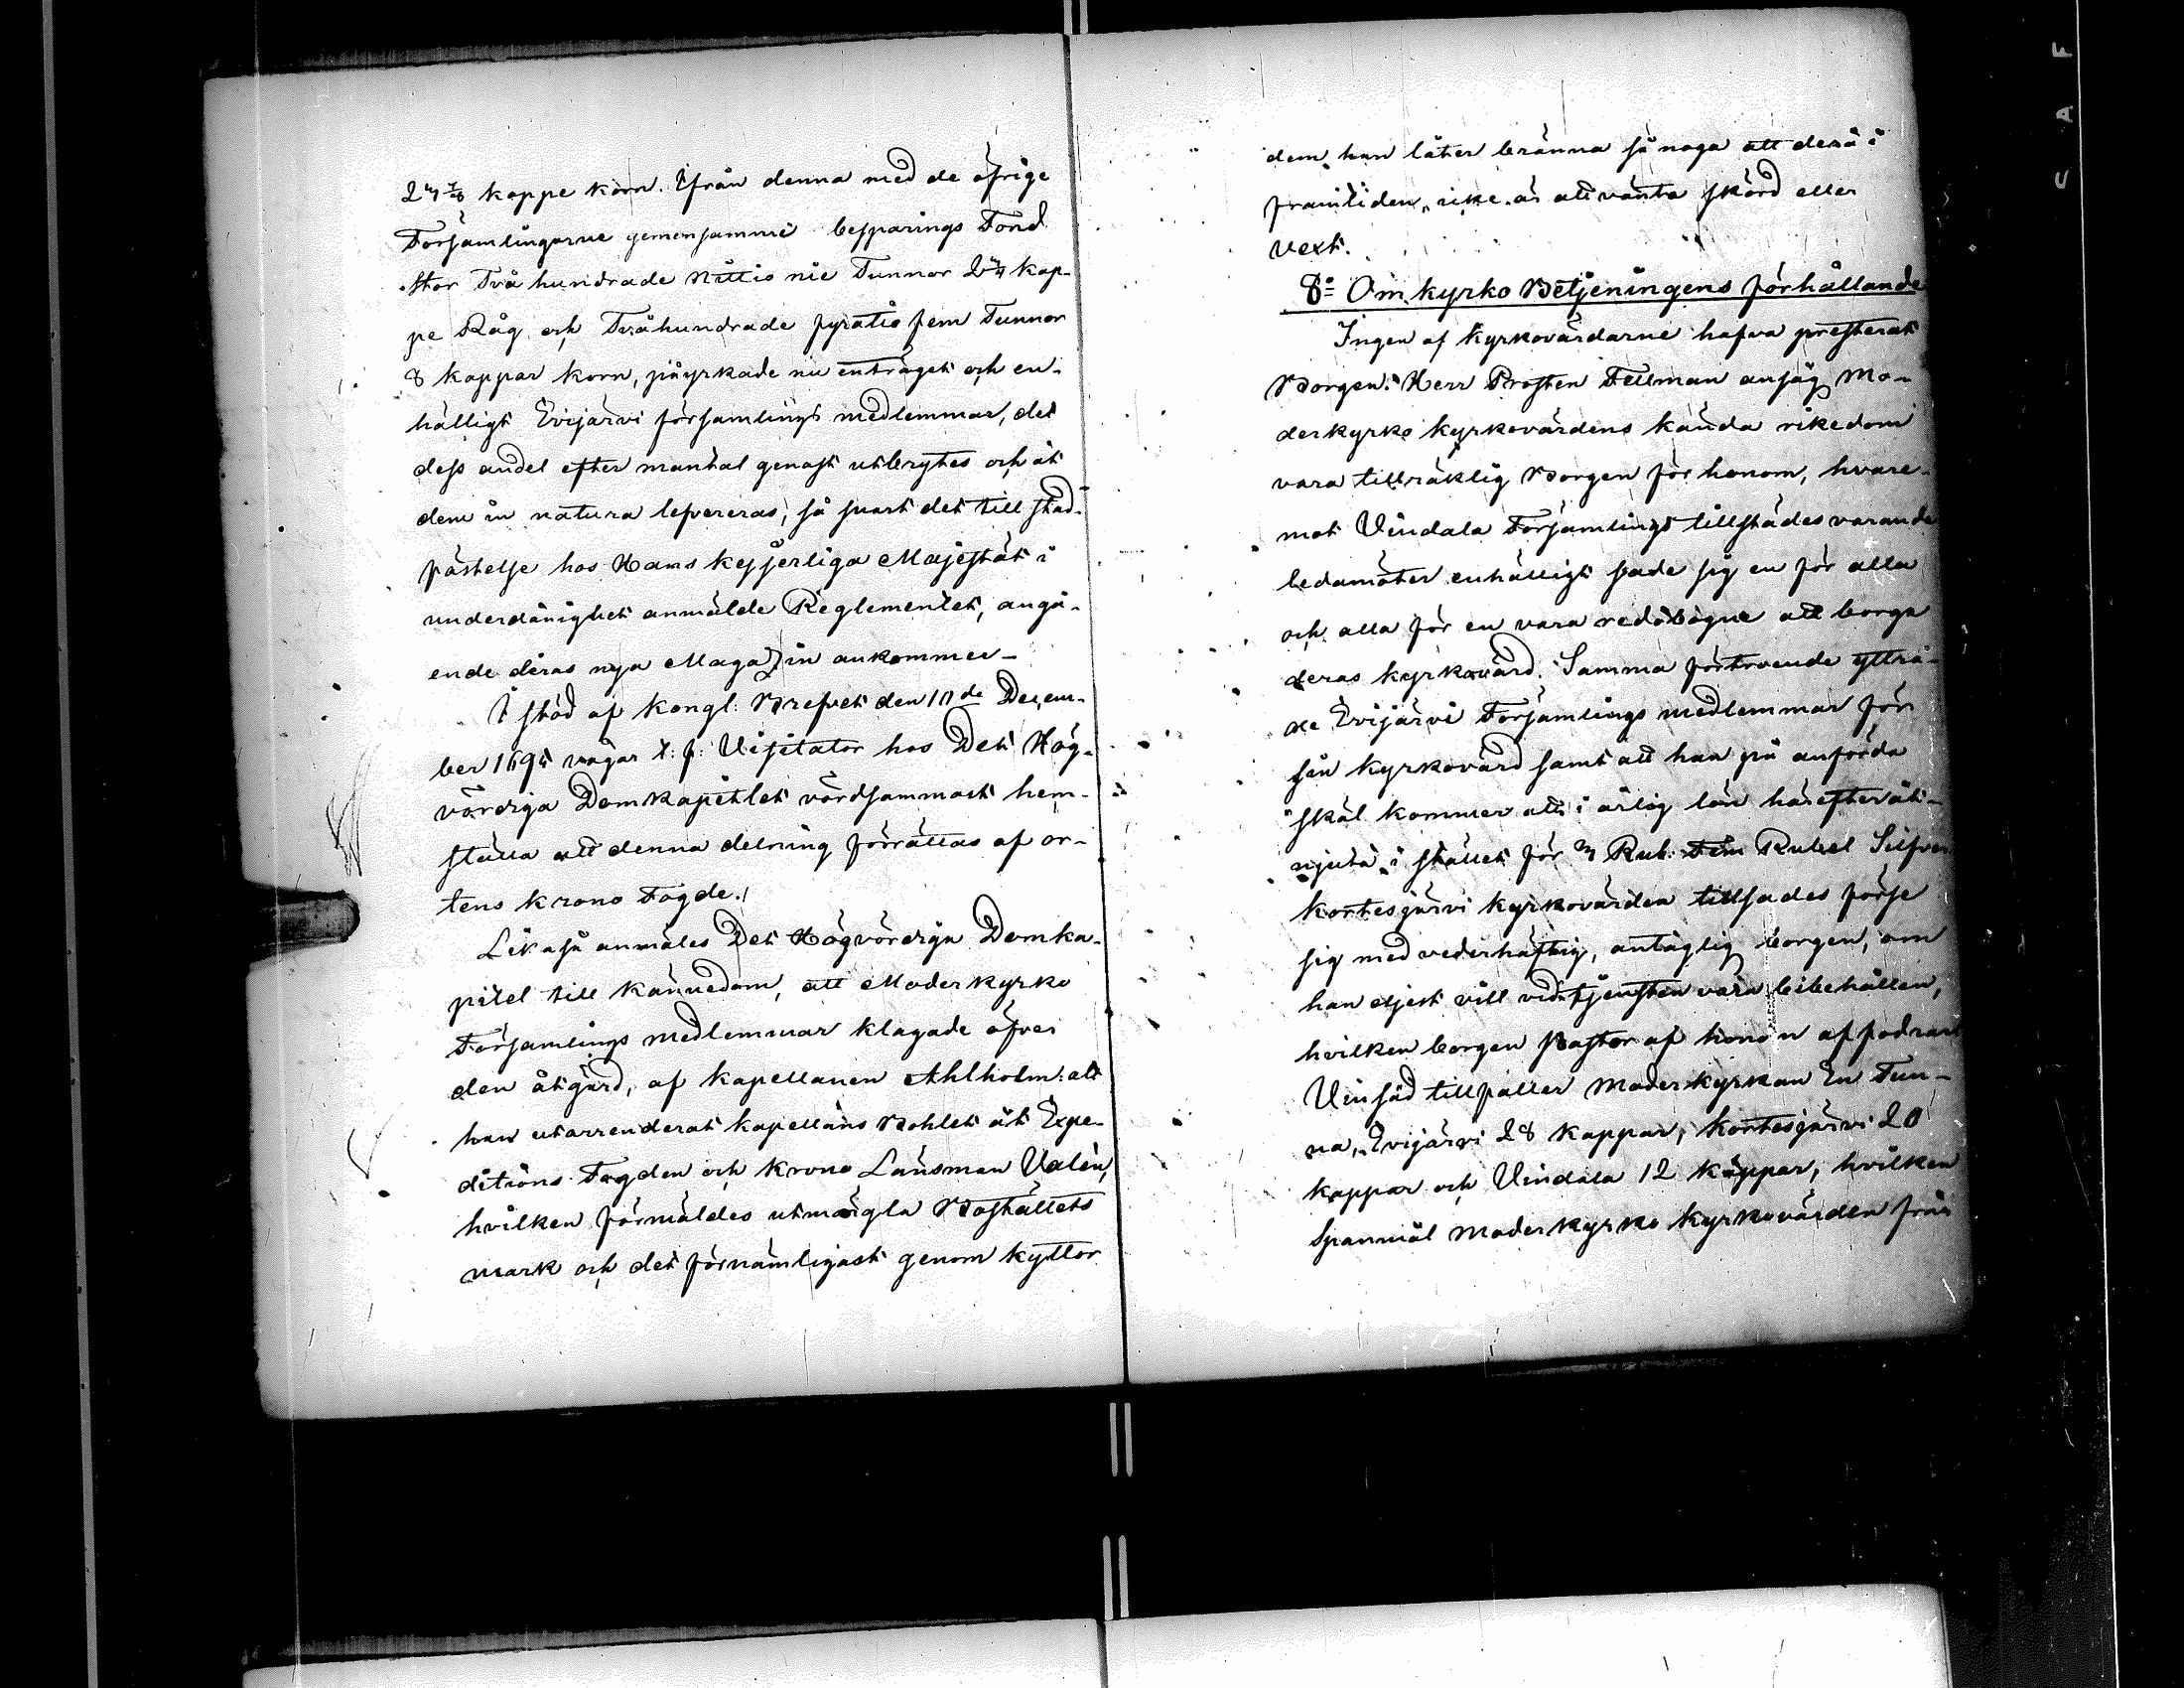 kappe korn. Ifrån denna med de öfrige
Församlingarne gemensamme besparings Fond
stor Två hundrade Nittio nie Tunnor kap-
pe Råg och Tvåhundrade fyratio fem Tunnor
8 kappar korn, påyrkade nu enträget och en-
hälligt Evijärvi församlings medlemmar, det
dess andel efter mantal genast utbrytes och åt
dem in natura lefvereras, så snart det till stad-
fästelse hos Hans kejserliga Majestät i
underdånighet anmälde Reglementet, angå-
ende deras nya Magazin ankommer_
I stöd af kongl: Brefvet den de Decem-
ber vågar t: f: Visitator hos Det Hög-
vördiga Domkapitlet vördsammast hem-
ställa att denna delning förrättas af or-
tens krono Fogde./
Likaså anmäles Det Högvördiga Domka-
pitel till kännedom, att Moderkyrko
Församlings medlemmar klagade öfver
den åtgärd, af kapellanen Ahlholm: att
han utarrenderat kapellans Bohlet åt Expe-
ditions Fogden och krono Länsman Valén,
hvilken förmäldes utmärgla Boställets
mark och det förnämligast genom kyttor
dem han låter bränna så noga att derå i
framtiden icke är att vänta skörd eller
vext.
8:o Om kyrko Betjeningens förhållande
Ingen af kyrkovärdarne hafva presterat
Borgen: Herr Prosten Fellman ansåg Mo-
derkyrko kyrkovärdens kända rikedom
vara tillräklig Borgen för honom, hvare-
mot Vindala Församlings tillstädesvarande
ledamöter enhälligt sade sig en för alla
och alla för en vara redobogne att borga
deras kyrkovärd. Samma förtroende yttra-
de Evijärvi Församlings medlemmar för
sin kyrkovärd samt att han på anförda
skäl kommer att i årlig lön härefter åt-
njuta i stället för 3 Rub: Fem Rubel Silfver
kortesjärvi kyrkovärden tillsades förse
sig med vederhäftig, antaglig borgen, om
han eljest vill vid tjensten vara bibehållen,
hvilken borgen Pastor af honom affodrar
Vinsäd tillfaller Moderkyrkan En Tun-
na, Evijärvi 28 kappar, kortesjärvi 20
kappar och Vindala 12 kappar, hvilken
Spanmål Moderkyrko kyrkovärden från